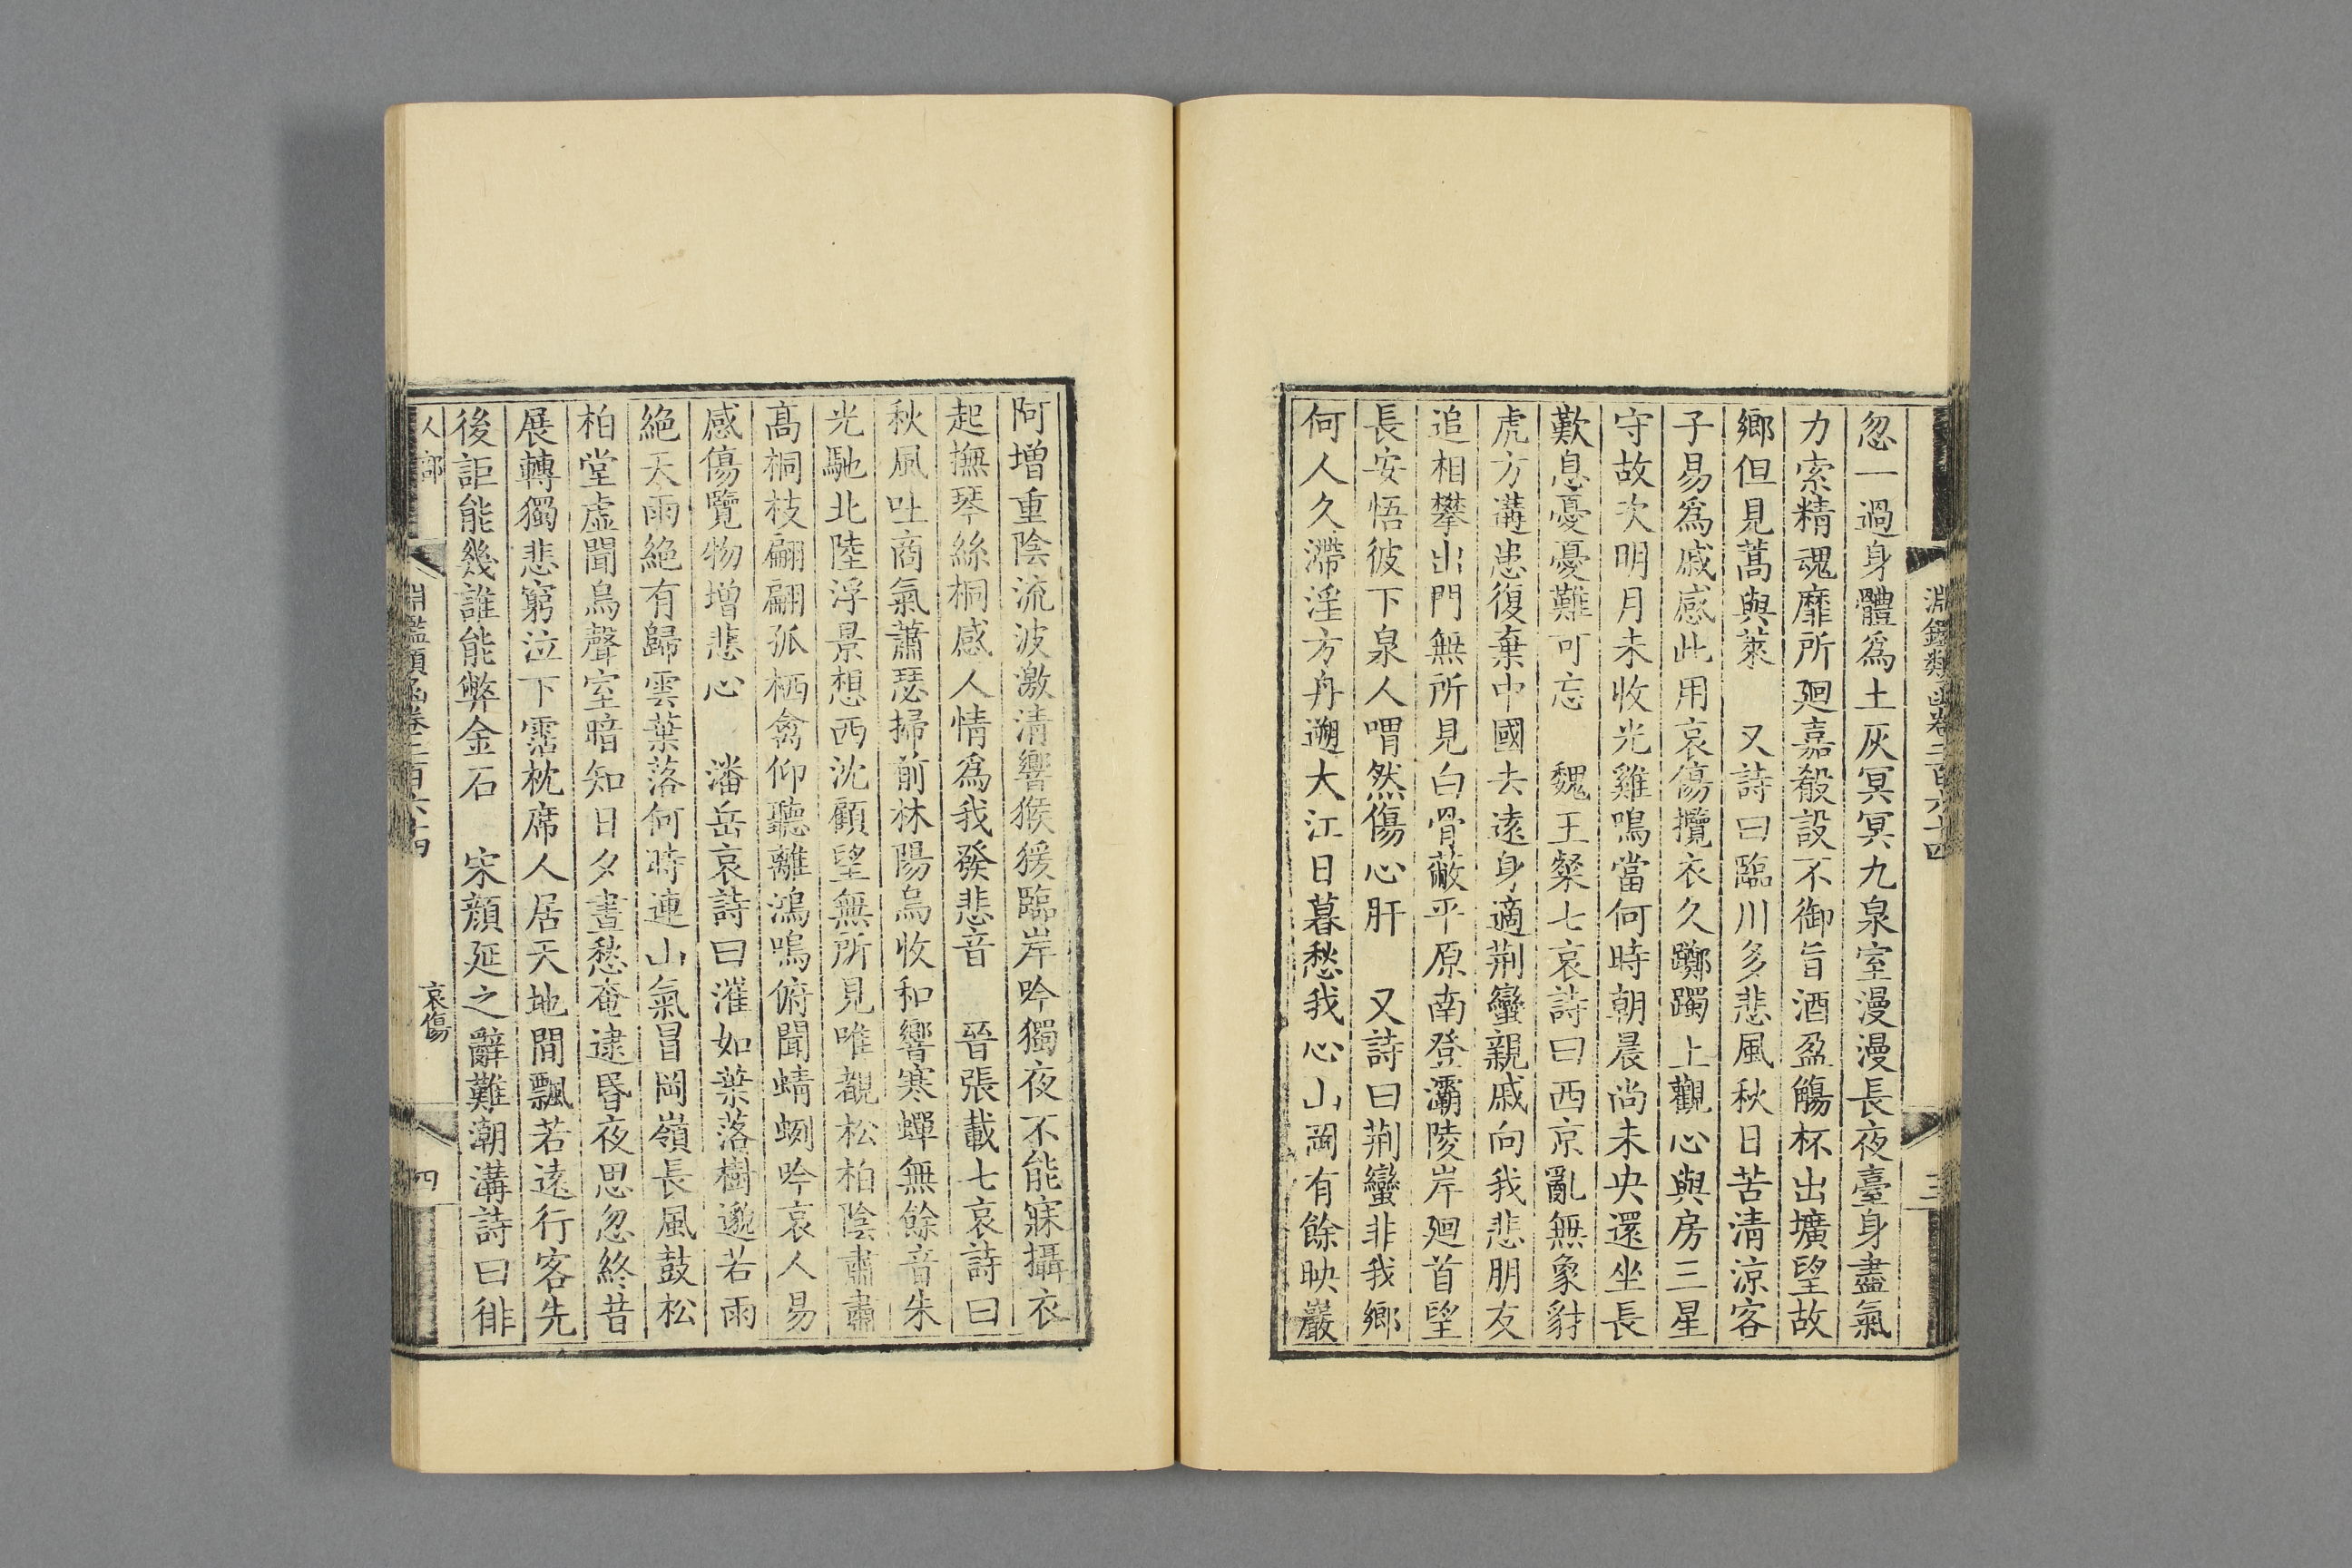 淵鑑類函卷二百六十四
三
忽一過身體爲土灰冥冥九泉室漫漫長夜臺身盡氣
力索精魂靡所廻嘉殽設不御旨酒盈觴杯出壙望故
鄉但見蒿與萊　又詩曰臨川多悲風秋日苦清涼客
子易爲戚感此用哀傷攬衣久躑躅上觀心與房三星
守故次明月未收光雞鳴當何時朝晨尚未央還坐長
歎息憂憂難可忘　魏王粲七哀詩曰西京亂無象豺
虎方遘患復棄中國去遠身適荆蠻親戚向我悲朋友
追相攀出門無所見白骨蔽平原南登灞陵岸廻首望
長安悟彼下泉人喟然傷心肝　又詩曰荆蠻非我鄉
何人久滯淫方舟遡大江日暮愁我心山岡有餘映巖
阿增重陰流波激清響猴猨臨岸吟獨夜不能寐攝衣
起撫琴絲桐感人情爲我發悲音　晉張載七哀詩曰
秋風吐商氣蕭瑟掃前林陽烏收和響寒蟬無餘音朱
光馳北陸浮景想西沈顧望無所見唯覩松柏陰肅肅
高桐枝翩翩孤栖禽仰聽離鴻鳴俯聞蜻蛚吟哀人易
感傷覽物增悲心　潘岳哀詩曰漼如葉落樹邈若雨
絕天雨絕有歸雲葉落何時連山氣冒岡嶺長風鼓松
柏堂虛聞鳥聲室暗知日夕晝愁奄逮昏夜思忽終昔
展轉獨悲窮泣下霑枕席人居天地間飄若遠行客先
後詎能幾誰能弊金石　宋顏延之辭難潮溝詩曰徘
人部
淵鑑類函卷二百六十四
哀傷
四